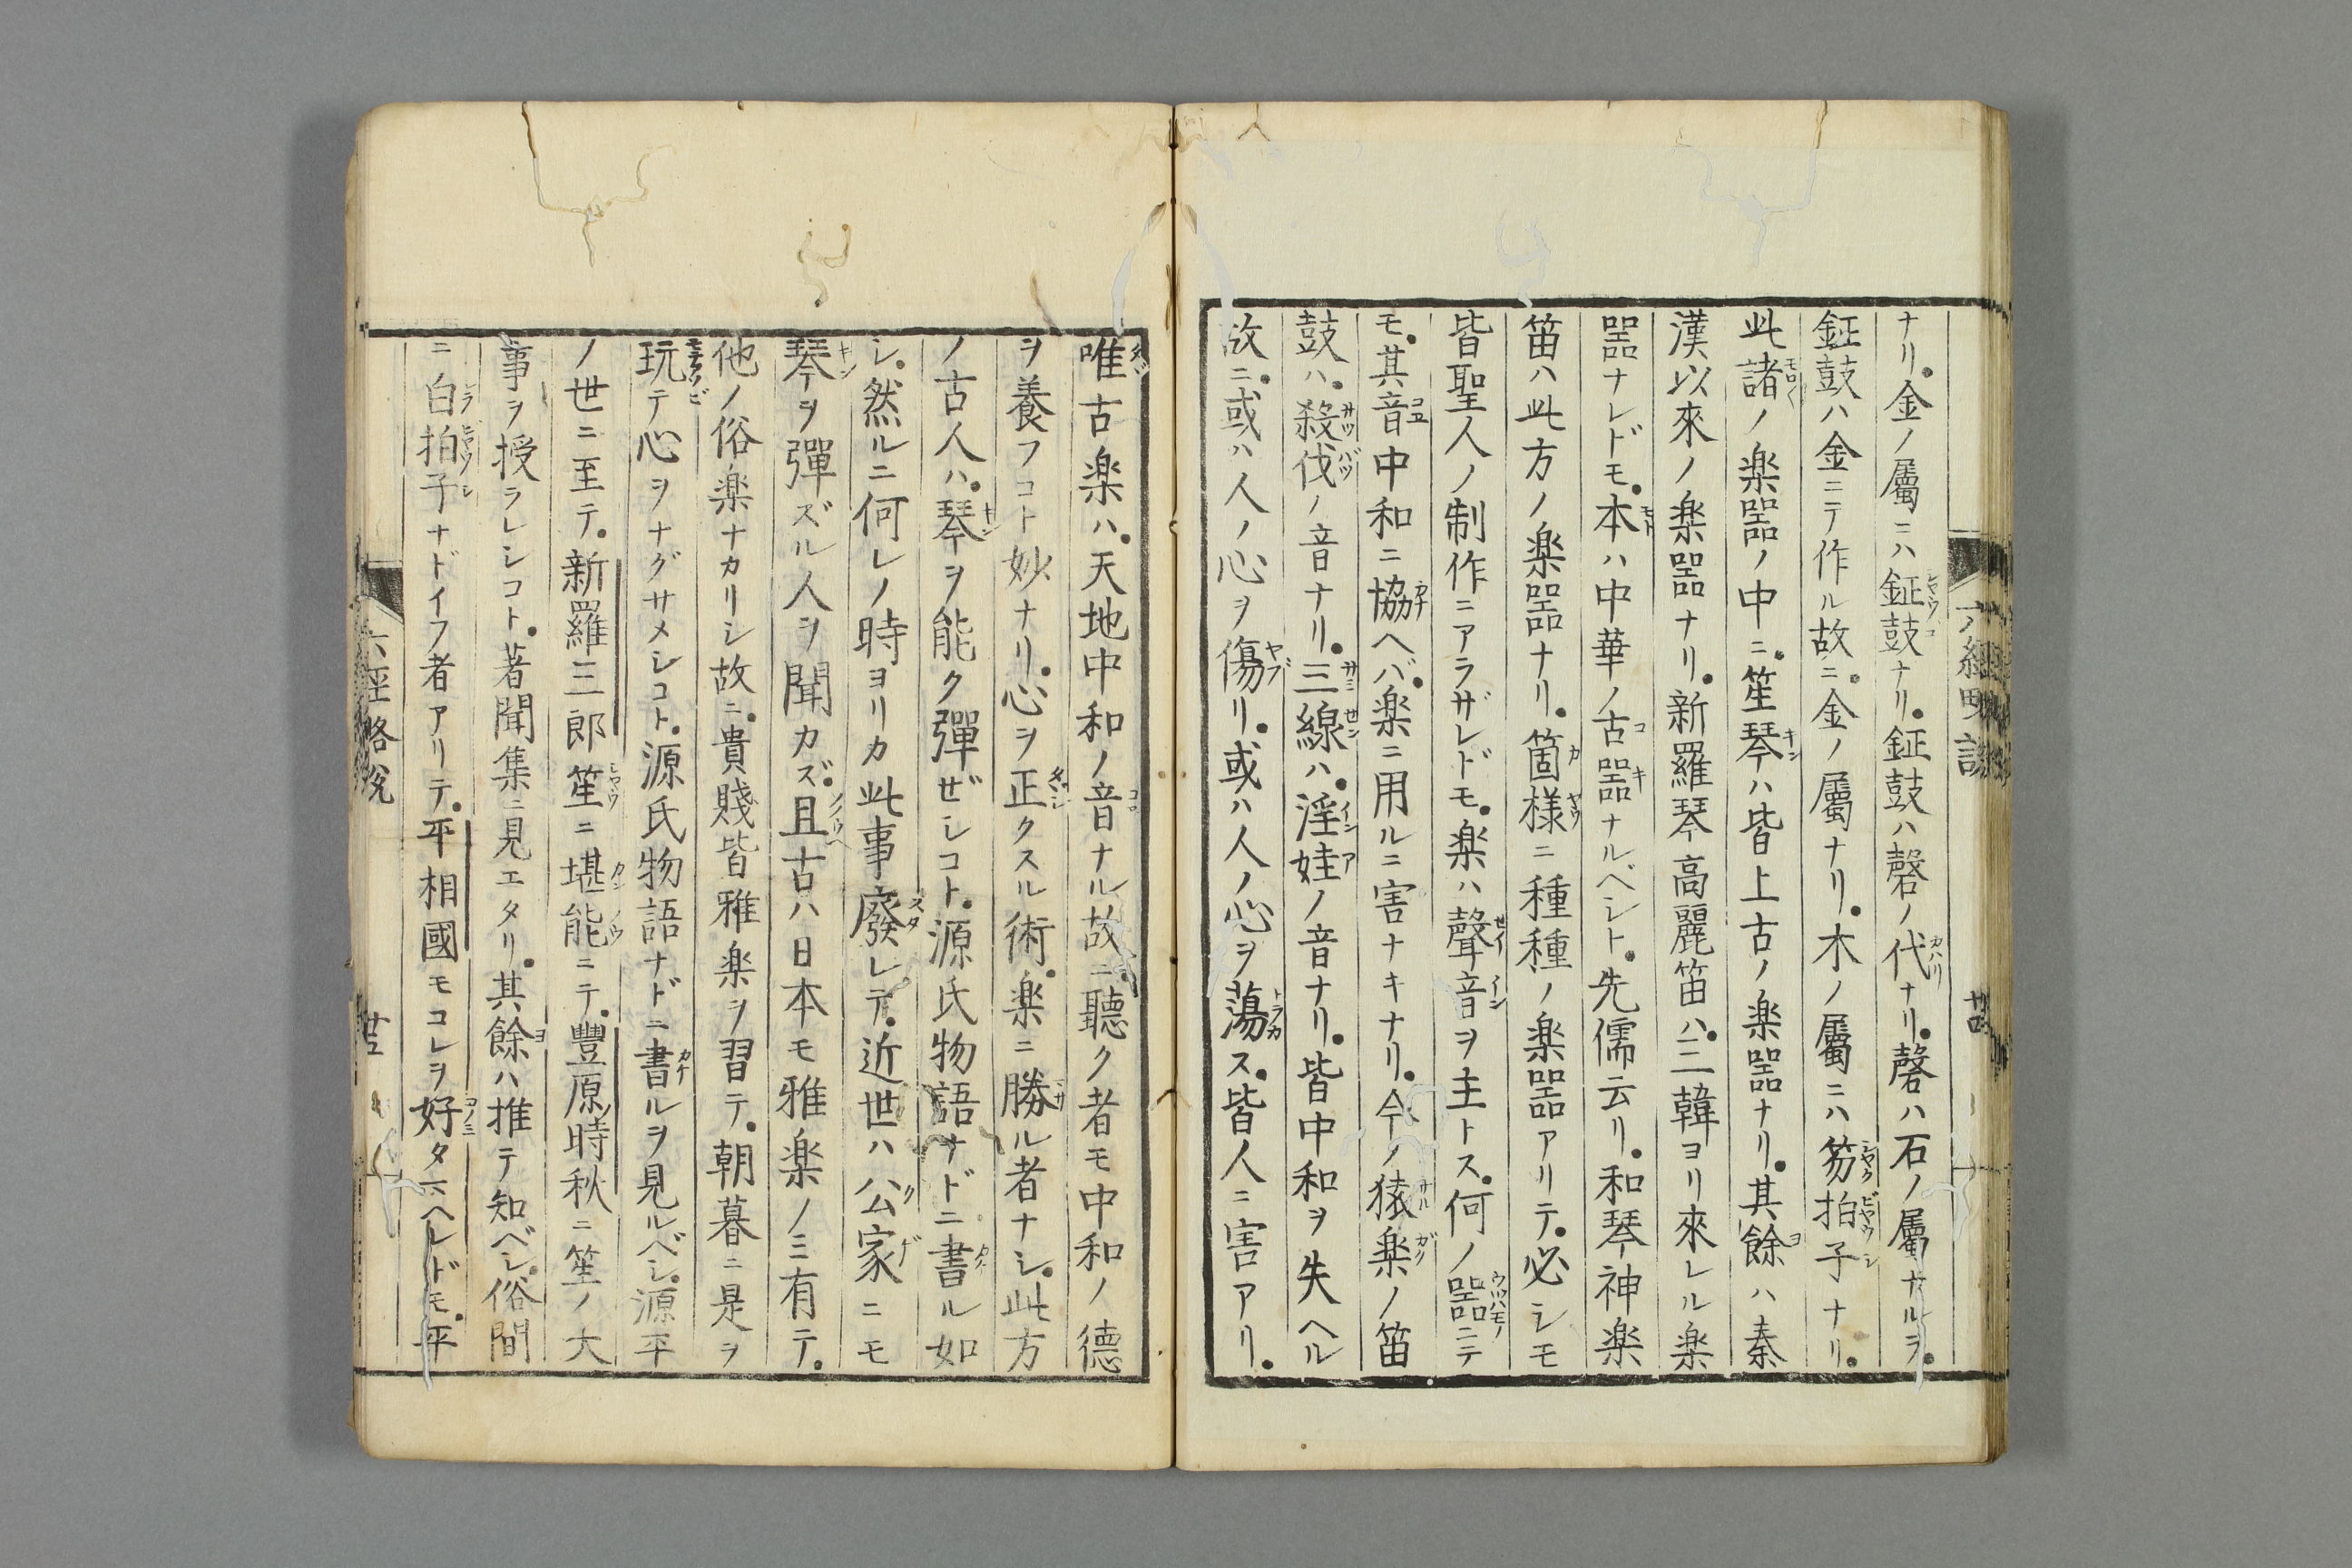 ナリ。金ノ屬ニハ鉦鼓ナリ。鉦鼓ハ磬ノ代ナリ。磬ハ石ノ屬ナルヲ。
鉦鼓ハ金ニテ作ル故ニ。金ノ屬ナリ。木ノ屬ニハ笏拍子ナリ。
此諸ノ楽噐ノ中ニ。笙琴ハ皆上古ノ楽噐ナリ。其餘ハ秦
漢以來ノ楽噐ナリ。新羅琴高麗笛ハ。三韓ヨリ來レル楽
噐ナレドモ。本ハ中華ノ古噐ナルベシト。先儒云リ。和琴神楽
笛ハ此方ノ楽噐ナリ。箇様ニ種種ノ楽噐アリテ。必シモ
皆聖人ノ制作ニアラザレドモ。楽ハ聲音ヲ主トス。何ノ噐ニテ
モ。其音中和ニ協ヘバ。楽ニ用ルニ害ナキナリ。今ノ猿楽ノ笛
鼓ハ。殺伐ノ音ナリ。三線ハ。淫娃ノ音ナリ。皆中和ヲ失ヘル
故ニ。或ハ人ノ心ヲ傷リ。或ハ人ノ心ヲ蕩ス。皆人ニ害アリ。
唯古楽ハ。天地中和ノ音ナル故ニ聽ク者モ中和ノ德
ヲ養フコト妙ナリ。心ヲ正クスル術。楽ニ勝ル者ナシ。此方
ノ古人ハ。琴ヲ能ク彈ゼシコト。源氏物語ナドニ書ル如
シ。然ルニ何レノ時ヨリカ此事廢レテ。近世ハ公家ニモ
琴ヲ彈ズル人ヲ聞カズ。且古ハ日本モ雅楽ノミ有テ。
他ノ俗楽ナカリシ故ニ。貴賤皆雅楽ヲ習テ。朝暮ニ是ヲ
玩テ心ヲナグサメシコト。源氏物語ナドニ書ルヲ見ルベシ。源平
ノ世ニ至テ。新羅三郎笙ニ堪能ニテ。豐原時秋ニ笙ノ大
事ヲ授ラレシコト。著聞集ニ見エタリ。其餘ハ推テ知ベシ。俗間
ニ白拍子ナドイフ者アリテ。平相國モコレヲ好タマヘレドモ。平
六経略説
廿五